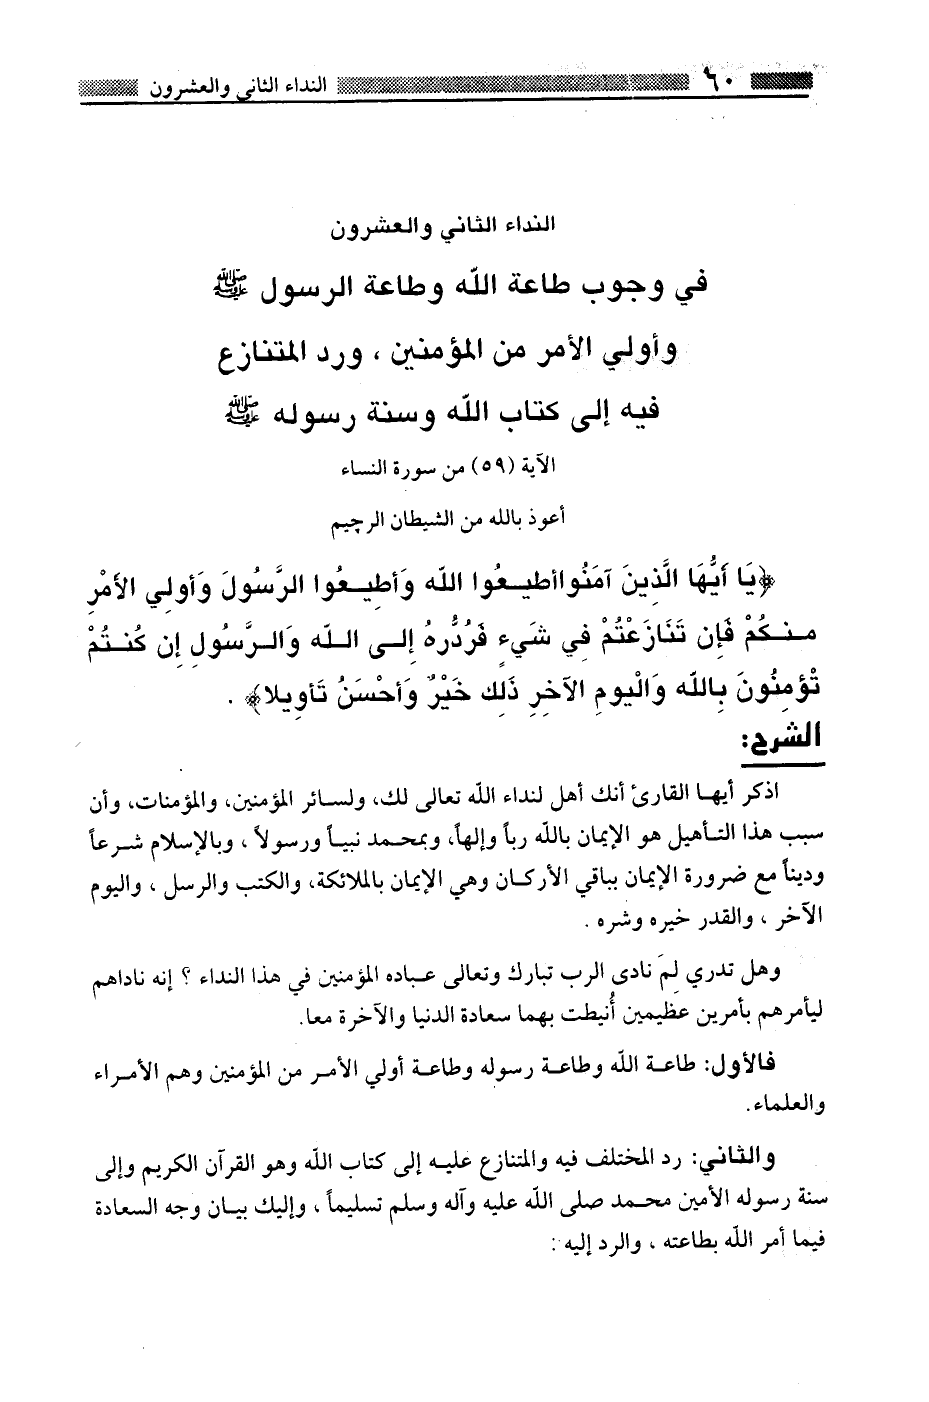 ٦٠ النداء الثاني والعشرون
النداء الثاني والعشرون
في وجوب طاعة الله وطاعة الرسول ﷺ
وأولي الأمر من المؤمنين ، ورد المتنازع
فيه إلى كتاب الله وسنة رسوله ﷺ
الآية (٥٩) من سورة النساء
أعوذ بالله من الشيطان الرجيم
﴿يَا أَيُّهَا الَّذِينَ آمَنُوا أطيعُوا الله وَأطِيعُوا الرَّسُولَ وَأولِي الأمْرِ
مِنكُمْ فَإِن تَنَازَعْتُمْ فِي شَيءٍ فَرُدُّوهُ إِلى الله وَالرَّسُولِ إِن كُنتُمْ
تُؤمِنُونَ بِالله وَالْيومِ الآخرِ ذَلك خَيْرٌ وَأحْسَنُ تَأوِيلا﴾ .
الشرح:
اذكر أيها القارئ أنك أهل لنداء الله تعالى لك، ولسائر المؤمنين، والمؤمنات، وأن
سبب هذا التأهيل هو الإيمان بالله رباً وإلهاً، وبمحمد نبياً ورسولاً ، وبالإسلام شرعاً
وديناً مع ضرورة الإيمان بباقي الأركان وهي الإيمان بالملائكة، والكتب والرسل ، واليوم
الآخر ، والقدر خيره وشره .
وهل تدري لِمَ نادى الرب تبارك وتعالى عباده المؤمنين في هذا النداء ؟ إنه ناداهم
ليأمرهم بأمرين عظيمين أُنيطت بهما سعادة الدنيا والآخرة معا.
فالأول: طاعة الله وطاعة رسوله وطاعة أولي الأمر من المؤمنين وهم الأمراء
والعلماء.
والثاني: رد المختلف فيه والمتنازع عليه إلى كتاب الله وهو القرآن الكريم وإلى
سنة رسوله الأمين محمد صلى الله عليه وآله وسلم تسليماً ، وإليك بيان وجه السعادة
فيما أمر الله بطاعته ، والرد إليه :